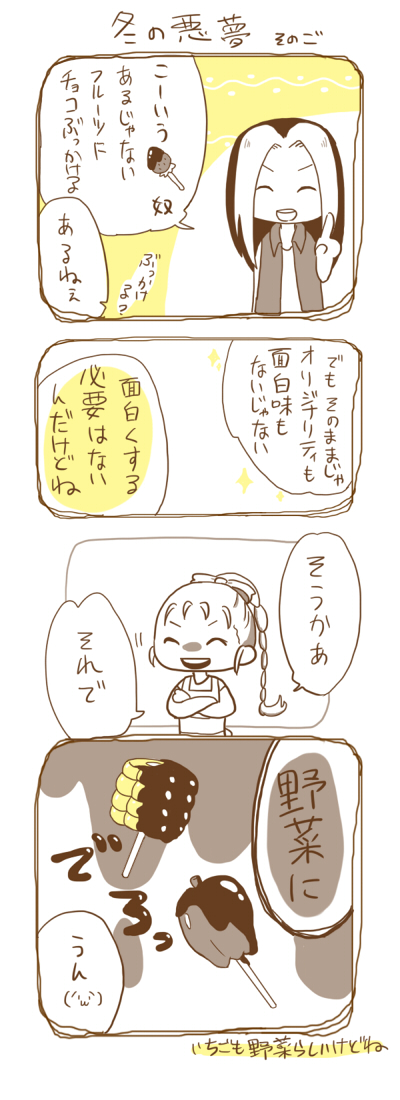 冬の悪夢 そのご
こーいう
あるじゃない
フルーツに
チョコぶっかける
奴
ぶっかけ
る?
あるねぇ
でも そのままじゃ
オリジナリティも
面白味も
ないじゃない
面白くする
必要はない
んだけどね
そうかぁ
それで
野菜に
でろっ
うん
(´'ω'`)
いちごも野菜らしいけどね